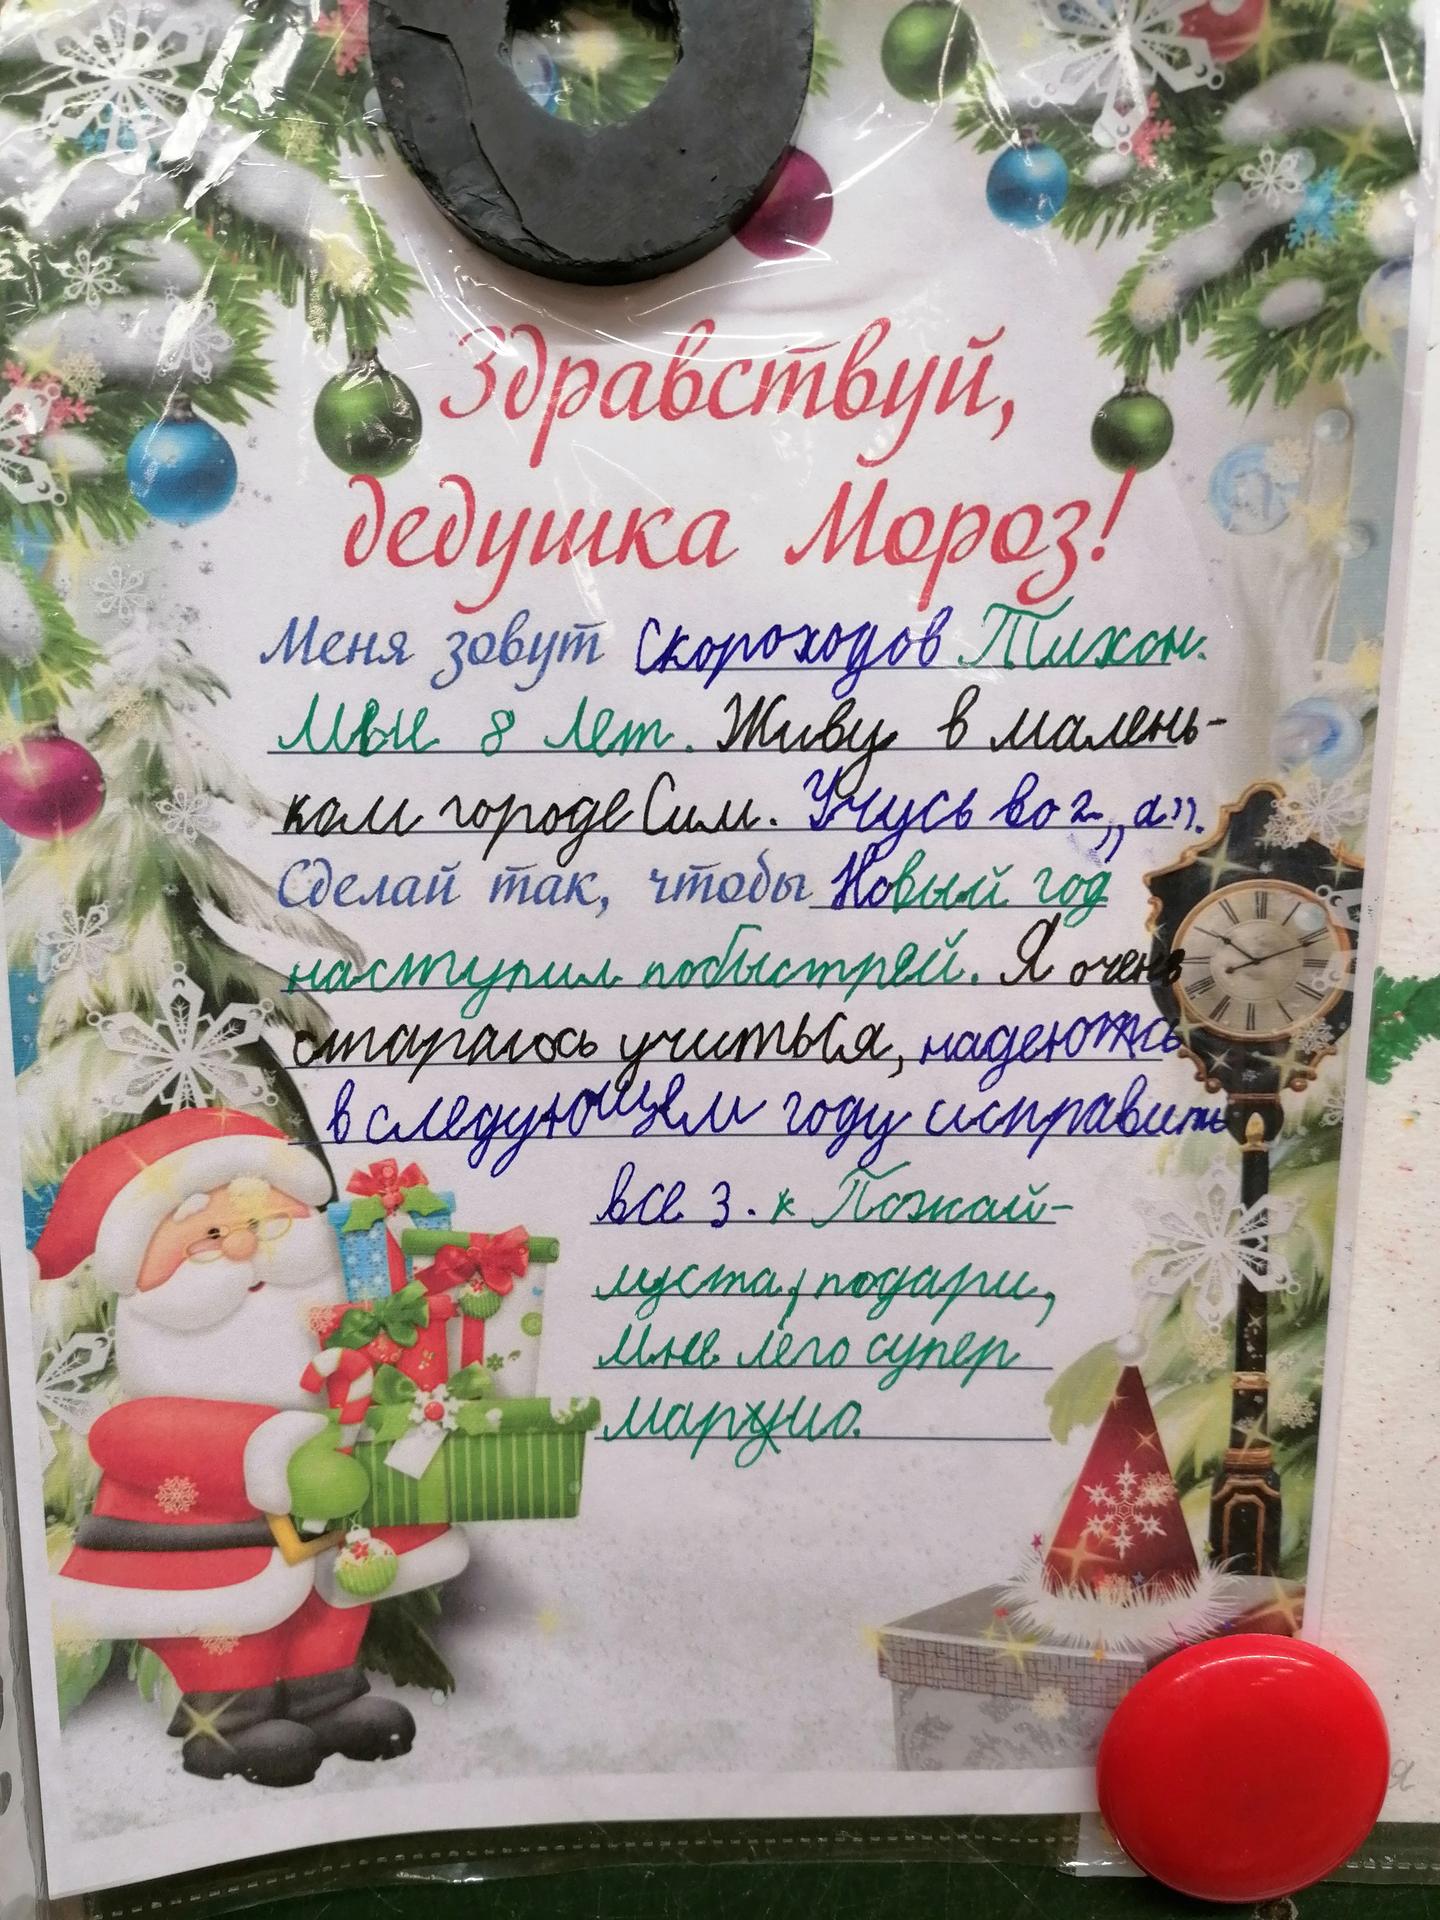 Здравствуй,
дедушка Мороз!
Меня зовут Скороходов Тихон.
Мне 8 лет. Живу в малень-
ком городе Сим. Учусь во 2 „а".
Сделай так, чтобы Новый год
наступил побыстрей. Я очень
стараюсь учиться, надеюсь
в следующем году исправить
все 3. Пожай-
луста, подари,
мне лего супер
марио.